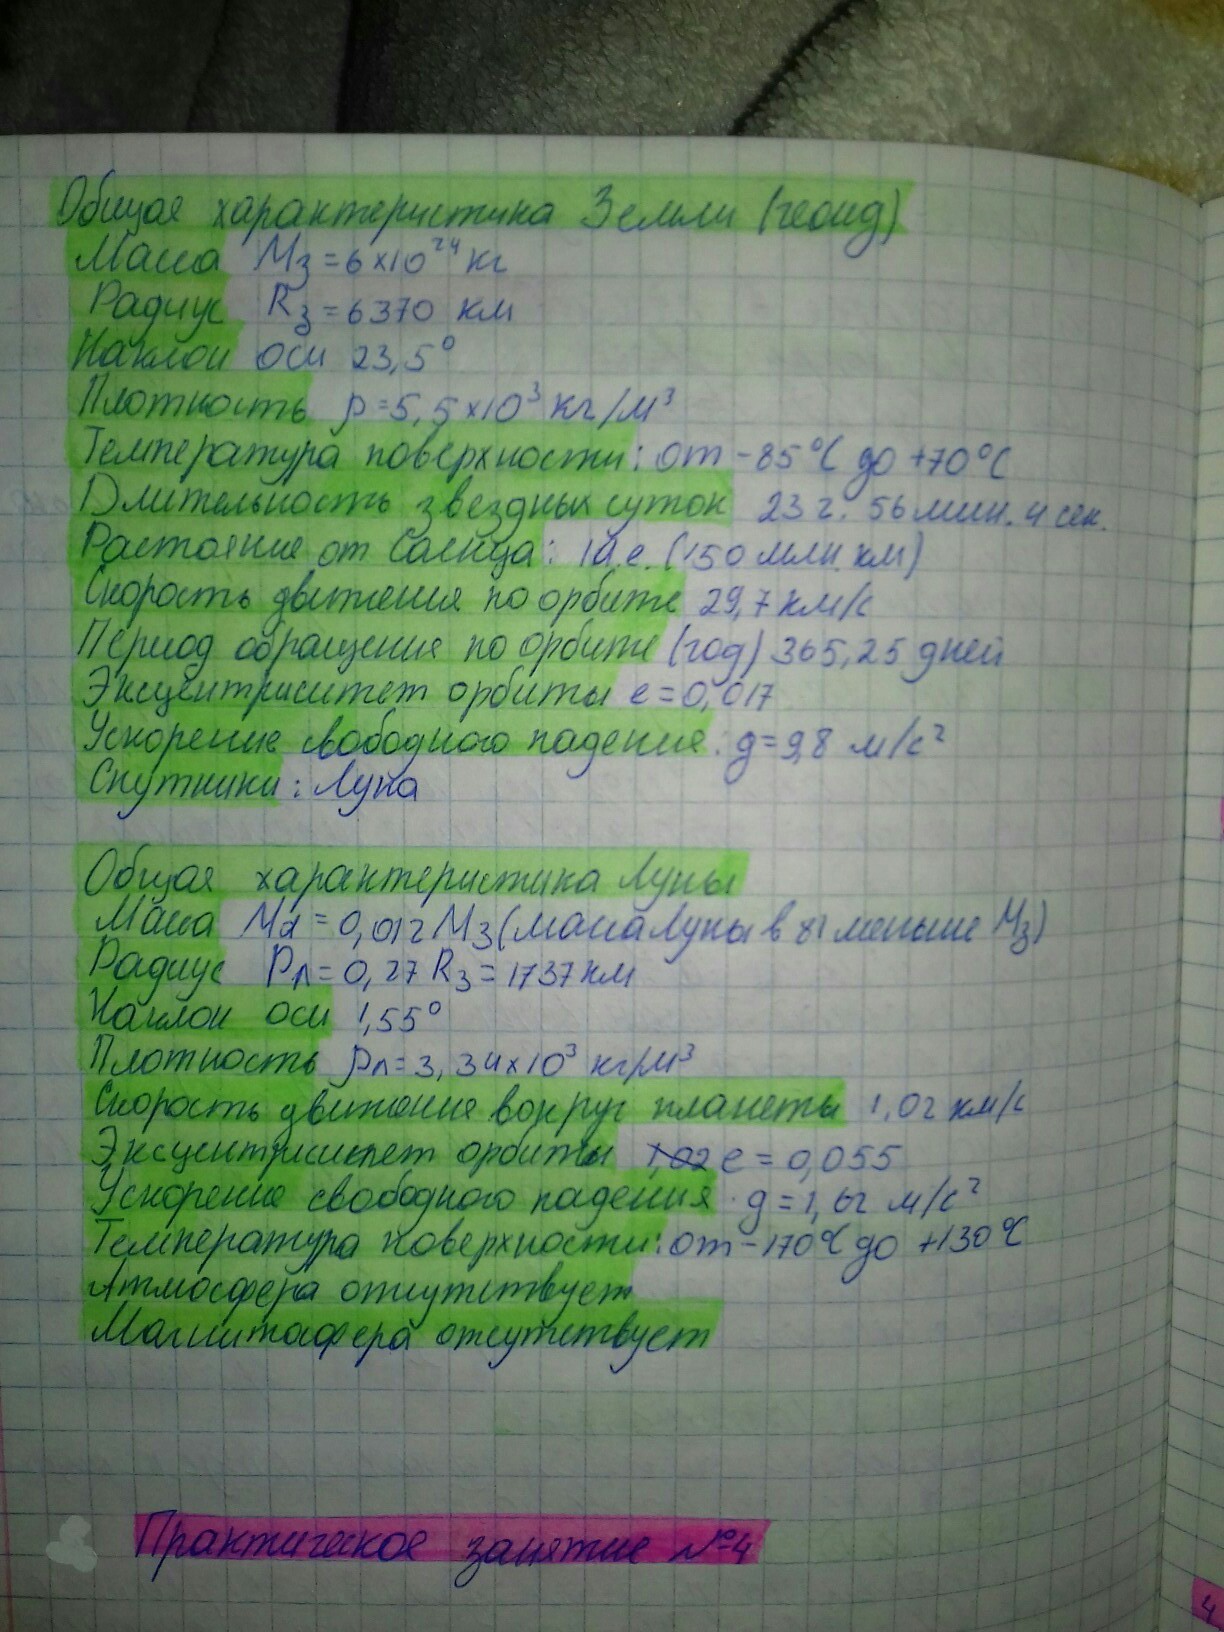 Общая характеристика Земли (геоид)
Масса Mз = 6×10²⁴ кг
Радиус Rз = 6370 км
Наклон оси 23,5°
Плотность ρ = 5,5×10³ кг/м³
Температура поверхности: от -85°C до +70°C
Длительность звездных суток 23 г. 56 мин. 4 сек.
Растояние от Солнца: 1а.е. (150 млн. км)
Скорость движения по орбите 29,7 км/с
Период обращения по орбите (год) 365,25 дней
Эксцентриситет орбиты e = 0,017
Ускорение свободного падения: g = 9,8 м/с²
Спутники: Луна
Общая характеристика Луны
Масса Mл = 0,012 Mз (масса Луны в 81 меньше Mз)
Радиус Pл = 0,27 Rз = 1737 км
Наклон оси 1,55°
Плотность ρл = 3,34×10³ кг/м³
Скорость движения вокруг планеты 1,02 км/с
Эксцентриситет орбиты 1,02 e = 0,055
Ускорение свободного падения. g = 1,62 м/с²
Температура поверхности: от -170°C до +130°C
Атмосфера отсутствует
Магнитосфера отсутствует
Практическое занятие №4
4